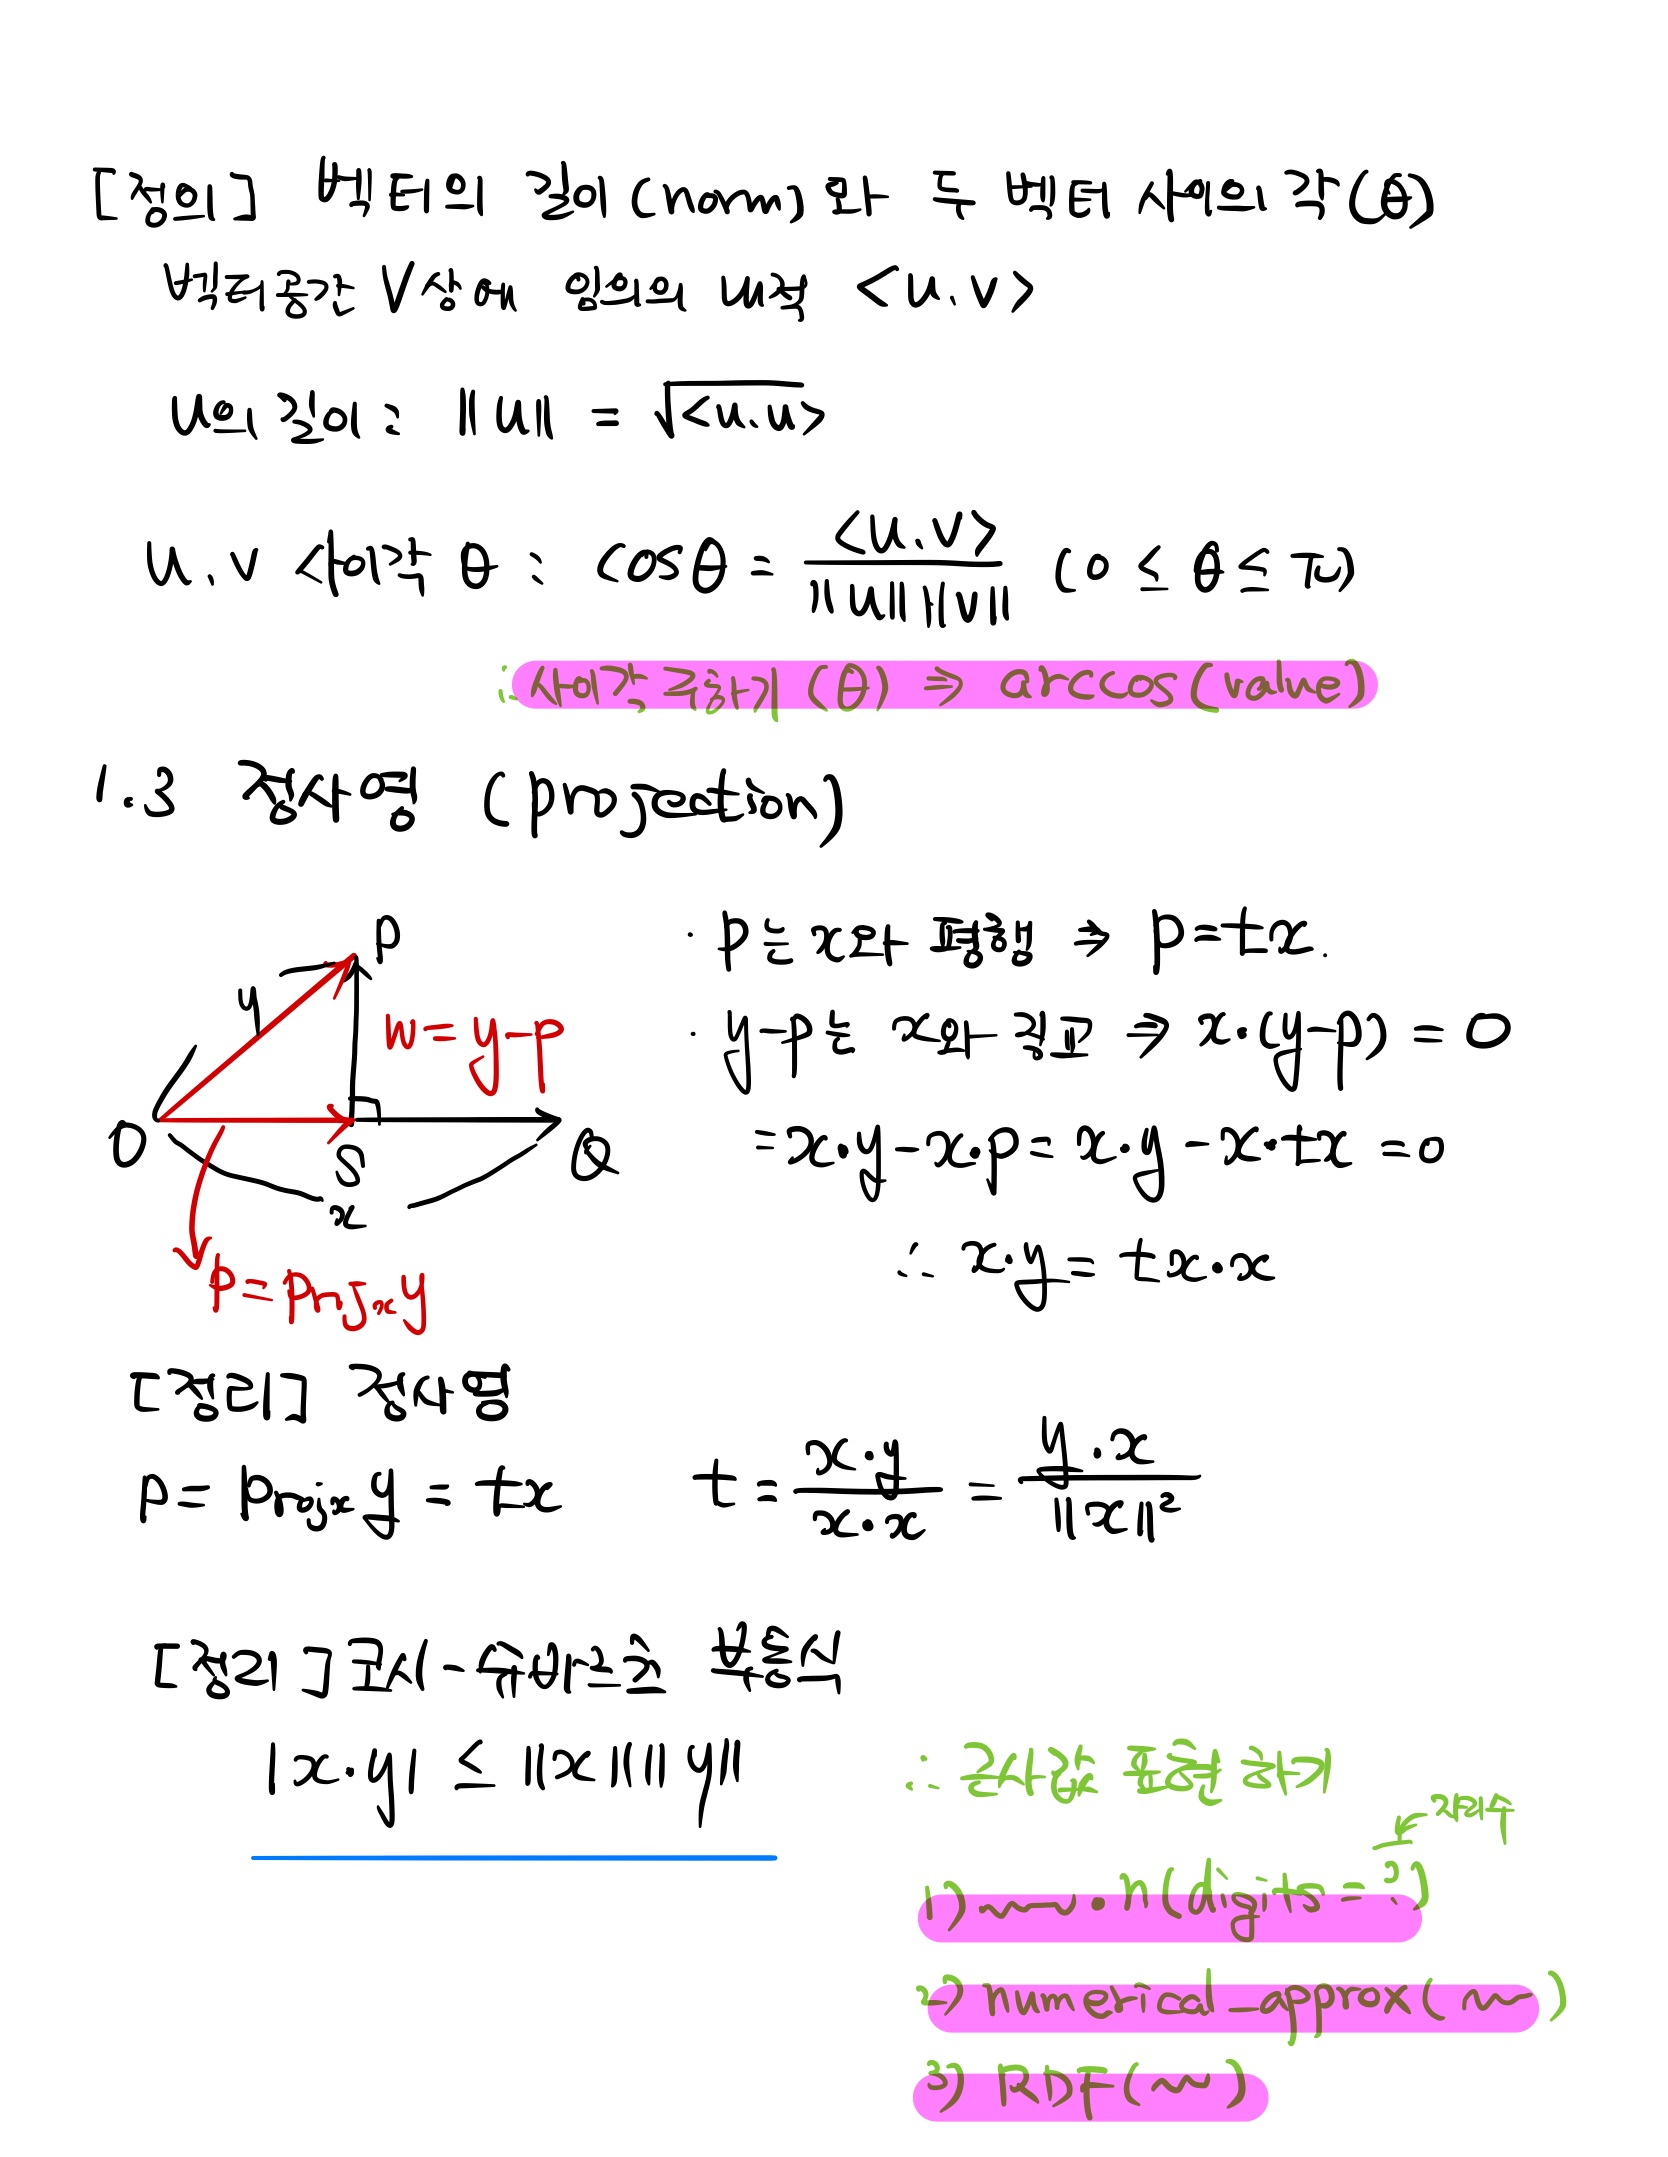 [정의] 벡터의 길이(norm)와 두 벡터 사이의 각(θ)
벡터공간 V상에 임의의 내적 <u.v>
u의 길이: ||u|| = √<u.u>
u.v 사이각 θ : cosθ = <u.v> / ||u|| ||v|| (0 ≤ θ ≤ π)
: 사이각 구하기(θ) ⇒ arccos(value)
1.3 정사영 (projection)
P
y
w=y-p
O
S
Q
x
p=projₓy
· p는 x와 평행 ⇒ p=tx.
· y-p는 x와 직교 ⇒ x·(y-p) = 0
=x·y-x·p= x·y-x·tx =0
∴ x·y= tx·x
[정리] 정사영
p= projₓy = tx t= x·y / x·x = y·x / ||x||²
[정리] 코시-슈바르츠 부등식
|x·y| ≤ ||x|| ||y||
∴ 근사값 표현하기
← 자리수
1) ~~.n(digits=?)
2) numerical_approx(~)
3) RDF(~)